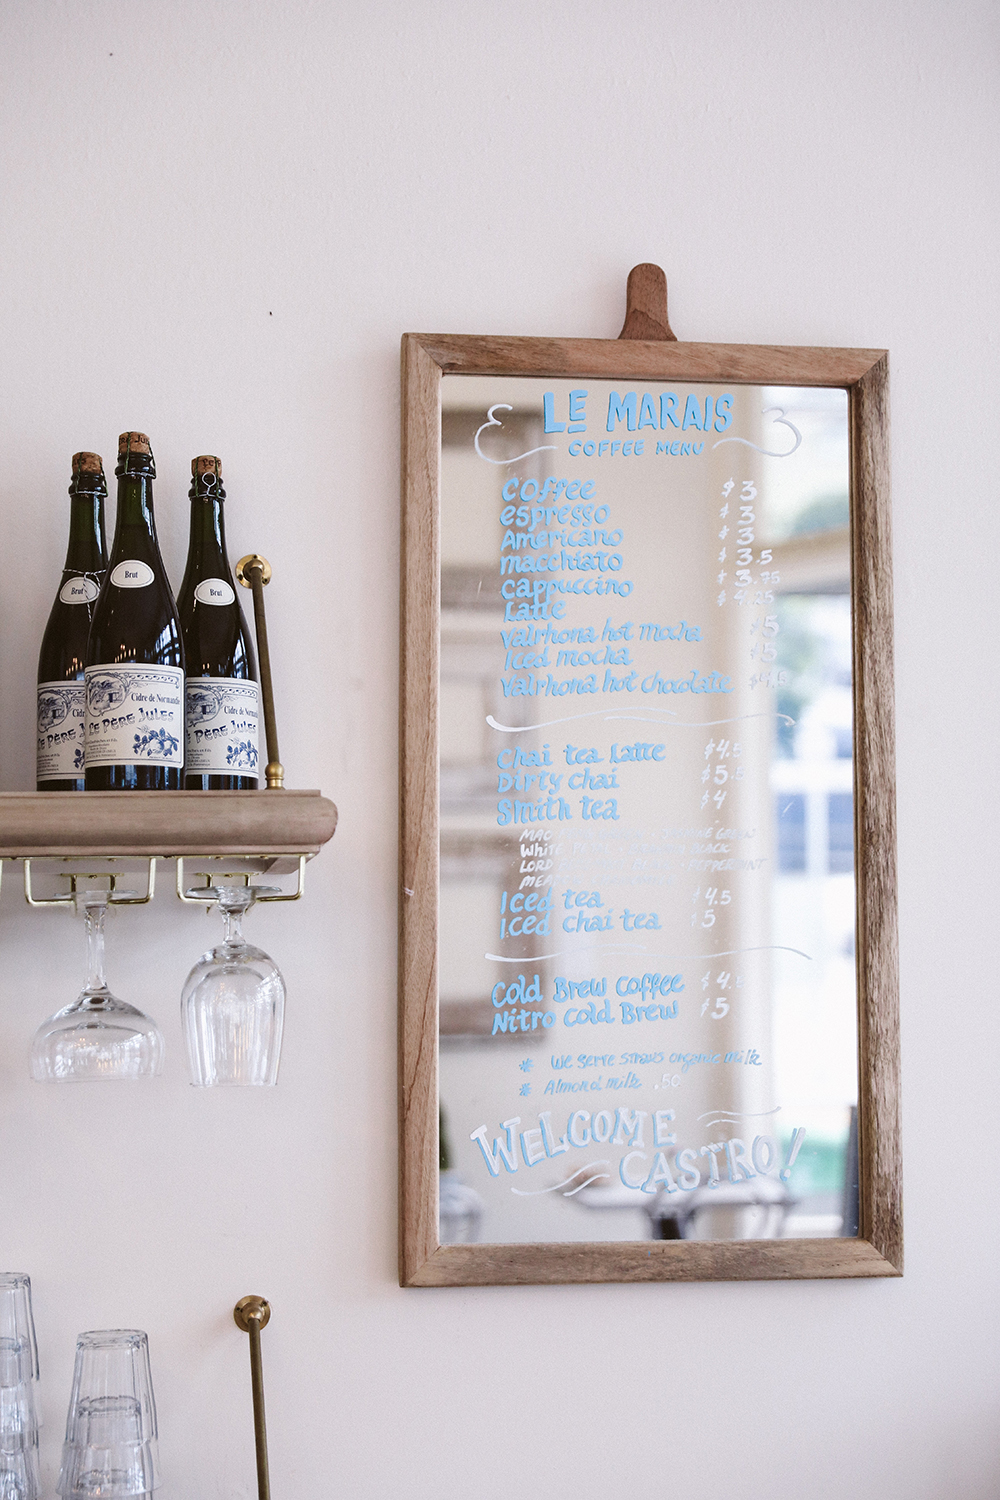 LE MARAIS
COFFEE MENU
Coffee $3
espresso $3
Americano $3
macchiato $3.5
Cappuccino $3.75
Latte $4.25
Valrhona hot mocha $5
Iced mocha $5
Valrhona hot chocolate $4.5
Chai tea Latte $4.5
Dirty chai $5.5
Smith tea $4
MAC GREEN
White BLACK
LORD PEPPERMINT
Iced tea $4.5
Iced chai tea $5
Cold Brew Coffee $4.5
Nitro Cold Brew $5
* We serve straus organic milk
* Almond milk .50
WELCOME
CASTRO!
Brut
Brut
Brut
Cidre de Normandie
LE PÈRE JULES